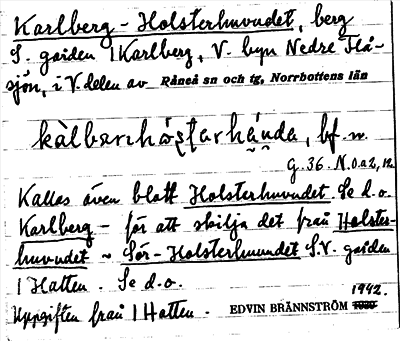 Karlberg - Holsterhuvudet, berg
S. gården 1 Karlberg, V. byn Nedre Flå-
sjön, i V. delen av Råneå sn och tg, Norrbottens län
bf. n.
G. 36. N.
Kallas även blott Holsterhuvudet. Se d.o.
Karlberg - för att skilja det från Holster-
huvudet ~ Sör-Holsterhuvudet S.V. gården
1 Hatten. Se d.o.
1942.
Uppgiften från 1 Hatten. EDVIN BRÄNNSTRÖM